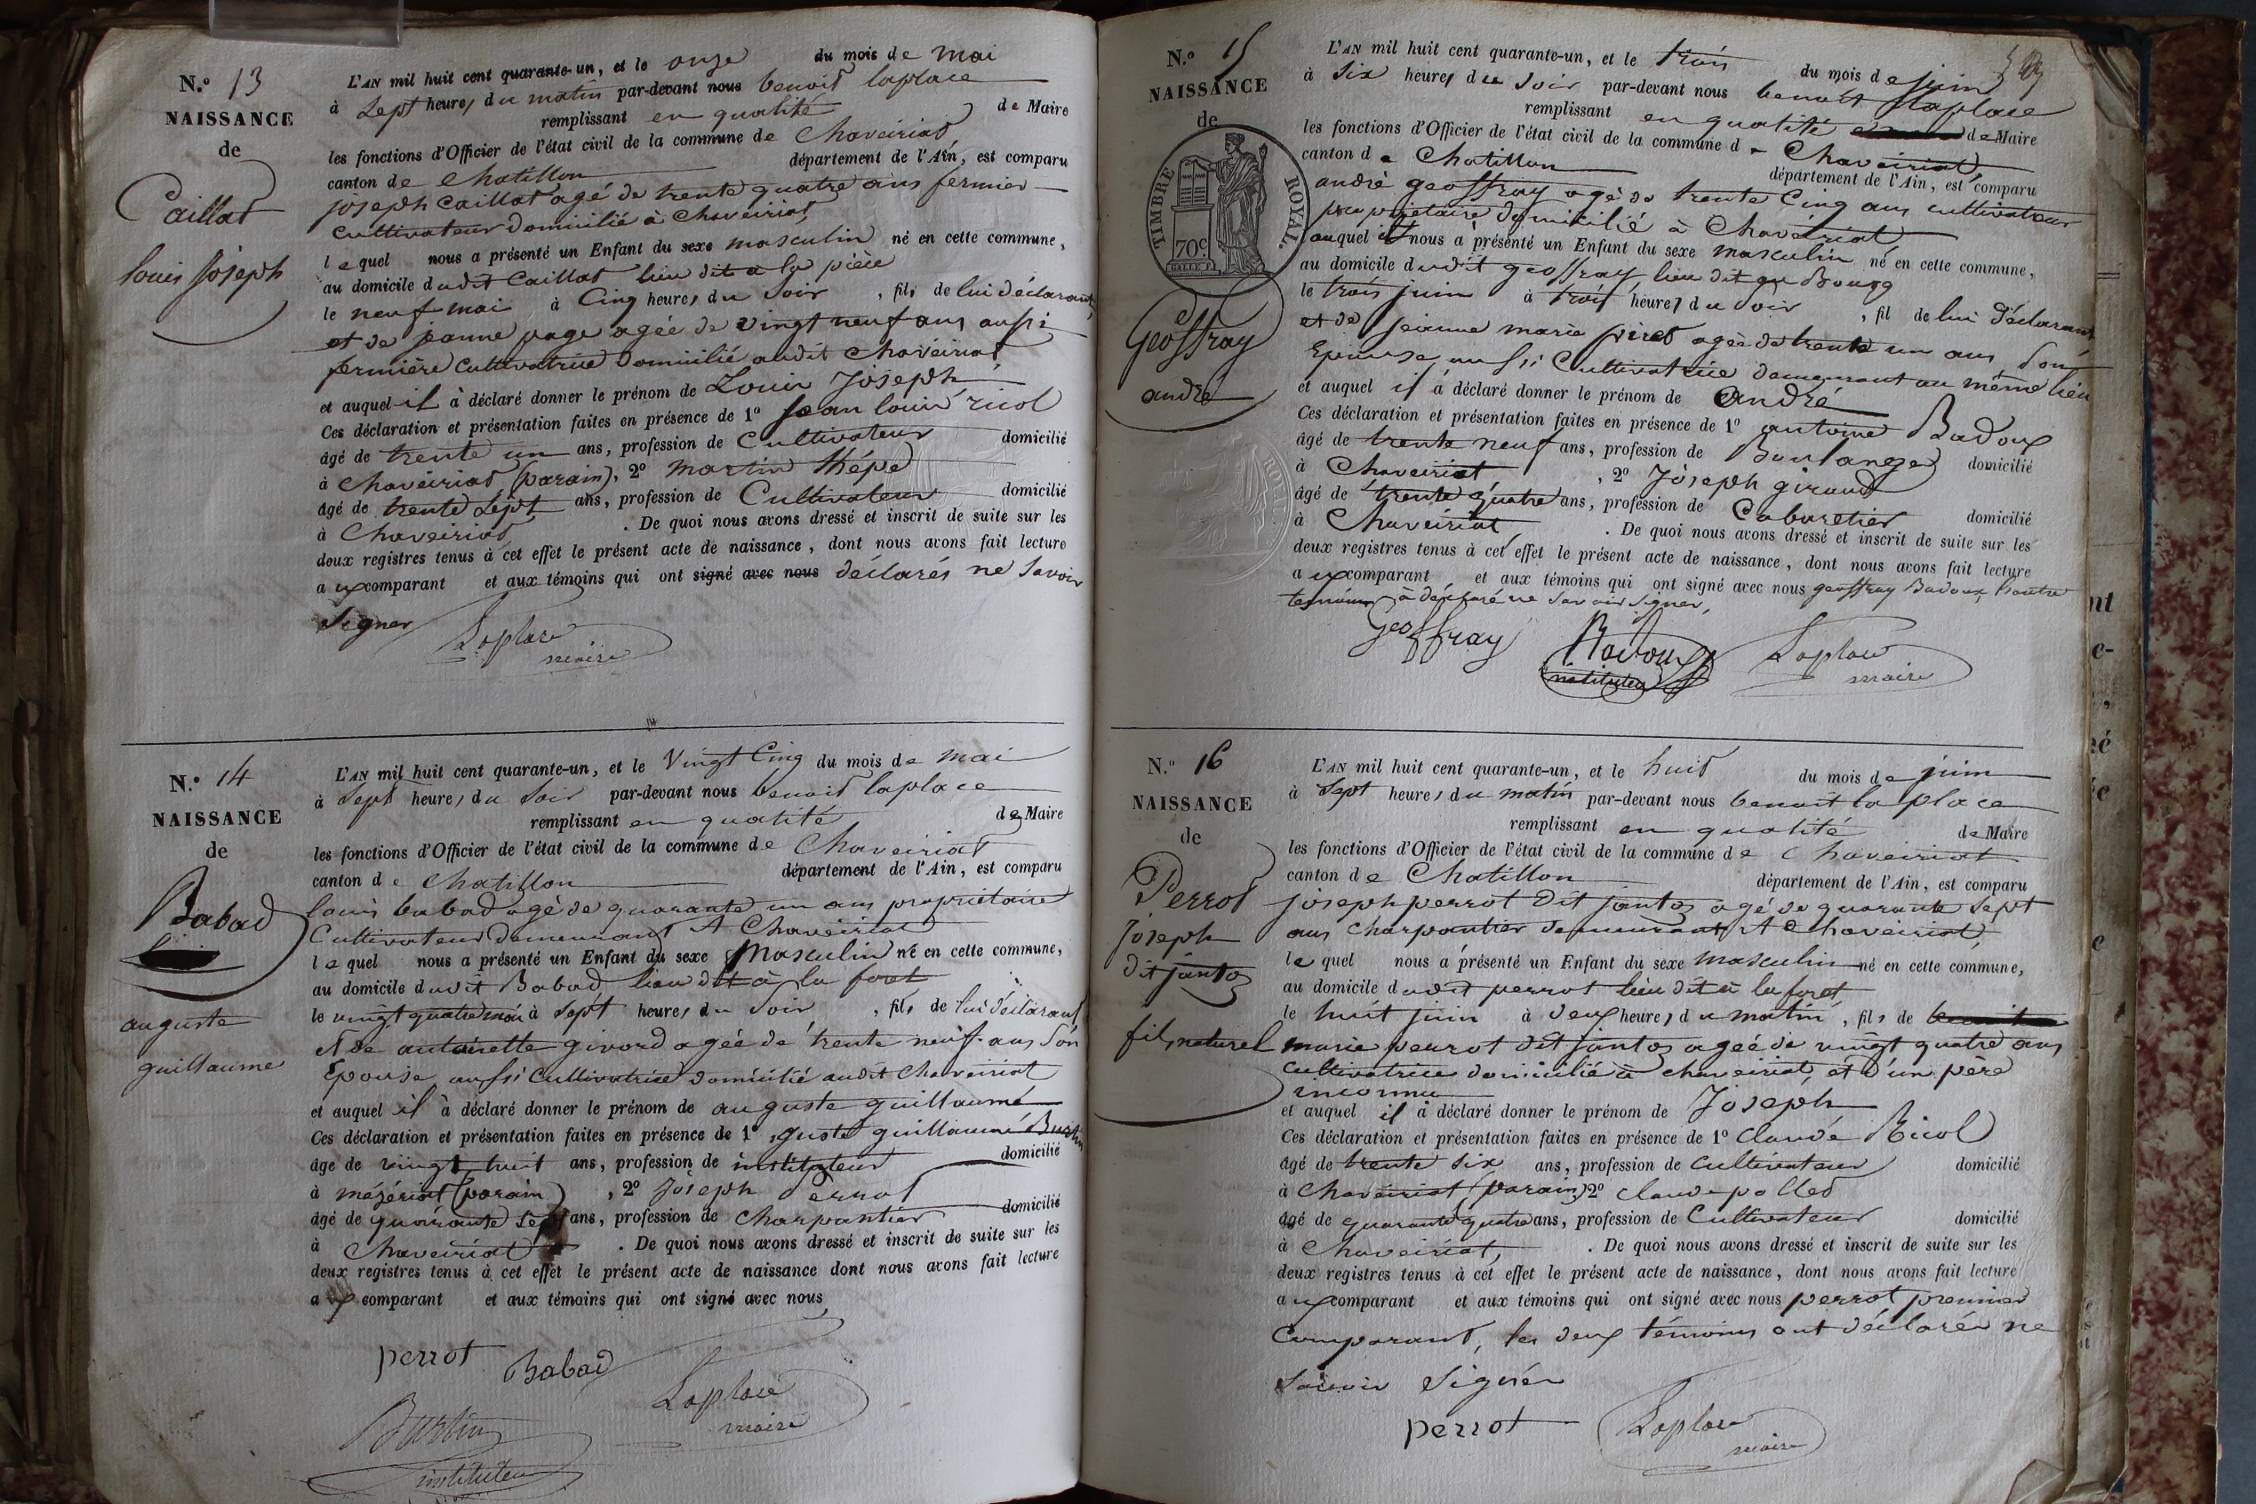 N.º 13
NAISSANCE
de
Caillat
louis Joseph
L'AN mil huit cent quarante-un, et le onze du mois de mai
à Sept heures du matin par-devant nous benoit laplace
remplissant en qualité de Maire
les fonctions d'Officier de l'état civil de la commune de Chaveiriat
canton de Chatillon département de l'Ain, est comparu
joseph Caillat agé de trente quatre ans fermier
Cultivateur domicilié à Chaveiriat
lequel nous a présenté un Enfant du sexe masculin né en cette commune,
au domicile dudit Caillat lieu dit a la pièce
le neuf mai à Cinq heures du Soir, fils de lui déclarant,
et de jeanne page agée de vingt neuf ans aussi
fermière Cultivatrice domicilié audit Chaveiriat
et auquel il à déclaré donner le prénom de Louis Joseph
Ces déclaration et présentation faites en présence de 1º Jean louis ricol
âgé de trente un ans, profession de Cultivateur domicilié
à Chaveiriat (parain), 2º martin thépe
âgé de trente Sept ans, profession de Cultivateur domicilié
à Chaveiriat. De quoi nous avons dressé et inscrit de suite sur les
deux registres tenus à cet effet le présent acte de naissance, dont nous avons fait lecture
aux comparant et aux témoins qui ont signé avec nous déclarés ne Savoir
Signer
Laplace
maire
N.º 14
NAISSANCE
de
Babad
auguste
guillaume
L'AN mil huit cent quarante-un, et le Vingt Cinq du mois de mai
à Sept heures du Soir par-devant nous benoit laplace
remplissant en qualité de Maire
les fonctions d'Officier de l'état civil de la commune de Chaveiriat
canton de Chatillon département de l'Ain, est comparu
louis babad agé de quarante un ans propriétaire
Cultivateur demeurant A Chaveiriat
lequel nous a présenté un Enfant du sexe Masculin né en cette commune,
au domicile dudit Babad lieu dit à la foret
le vingt quatre mai à Sept heures du Soir, fils de lui déclarant
et de antoinette givord agée de trente neuf ans Son
Epouse aussi Cultivatrice domicilié audit Chaveiriat
et auquel il à déclaré donner le prénom de auguste guillaume
Ces déclaration et présentation faites en présence de 1º guste guillaume Burtin
âgé de vingt huit ans, profession de instituteur domicilié
à mézériat (parain), 2º Joseph Perrot
âgé de quarante Sept ans, profession de Charpantier domicilié
à Chaveiriat. De quoi nous avons dressé et inscrit de suite sur les
deux registres tenus à cet effet le présent acte de naissance dont nous avons fait lecture
aux comparant et aux témoins qui ont signé avec nous
perrot Babad
Laplace
maire
Burtin
instituteur
N.º 15
NAISSANCE
de
TIMBRE ROYAL
70c.
Geoffray
andré
L'AN mil huit cent quarante-un, et le trois du mois de juin
à Six heures du Soir par-devant nous benoit laplace
remplissant en qualité de Maire
les fonctions d'Officier de l'état civil de la commune de Chaveiriat,
canton de Chatillon département de l'Ain, est comparu
andré geoffray agé de trente Cinq ans cultivateur
propriétaire domicilié à Chaveriat
lequel nous a présenté un Enfant du sexe masculin né en cette commune,
au domicile dudit geoffray lieu dit au Bourg
le trois juin à trois heures du Soir, fil de lui déclarant
et de jeanne marie piret agée de trente un ans Son
Epouse aussi Cultivatrice demeurant au même lieu
et auquel il à déclaré donner le prénom de andré
Ces déclaration et présentation faites en présence de 1º antoine Badoux
âgé de trente neuf ans, profession de Boulanger domicilié
à Chaveiriat, 2º Joseph giraud
âgé de trente quatre ans, profession de Cabaretier domicilié
à Chaveiriat. De quoi nous avons dressé et inscrit de suite sur les
deux registres tenus à cet effet le présent acte de naissance, dont nous avons fait lecture
aux comparant et aux témoins qui ont signé avec nous geoffray Badoux, l'autre
temoin à déclaré ne savoir signer,
Geoffray
Badoux
Laplace
maire
N.º 16
NAISSANCE
de
Perrot
Joseph
dit jantoz
fils naturel
L'AN mil huit cent quarante-un, et le huit du mois de juin
à Sept heures du matin par-devant nous benoit la place
remplissant en qualité de Maire
les fonctions d'Officier de l'état civil de la commune de Chaveiriat
canton de Chatillon département de l'Ain, est comparu
joseph perrot Dit jantoz agé de quarante Sept
ans Charpantier demeurant A Chaveiriat
lequel nous a présenté un Enfant du sexe masculin né en cette commune,
au domicile dudit perrot lieu dit à la foret
le huit juin à deux heures du matin, fils de
marie perrot dit jantoz agée de vingt quatre ans
Cultivatrice domicilié à chaveiriat, et d'un père
inconnu
et auquel il à déclaré donner le prénom de Joseph
Ces déclaration et présentation faites en présence de 1º Claude Ricol
âgé de trente six ans, profession de Cultivateur domicilié
à Chaveiriat (parain) 2º Claude pollet
âgé de quarante quatre ans, profession de Cultivateur domicilié
à Chaveiriat. De quoi nous avons dressé et inscrit de suite sur les
deux registres tenus à cet effet le présent acte de naissance, dont nous avons fait lecture
aux comparant et aux témoins qui ont signé avec nous perrot premier
Comparant, les deux témoins ont déclarés ne
Savoir Signér
perrot
Laplace
maire